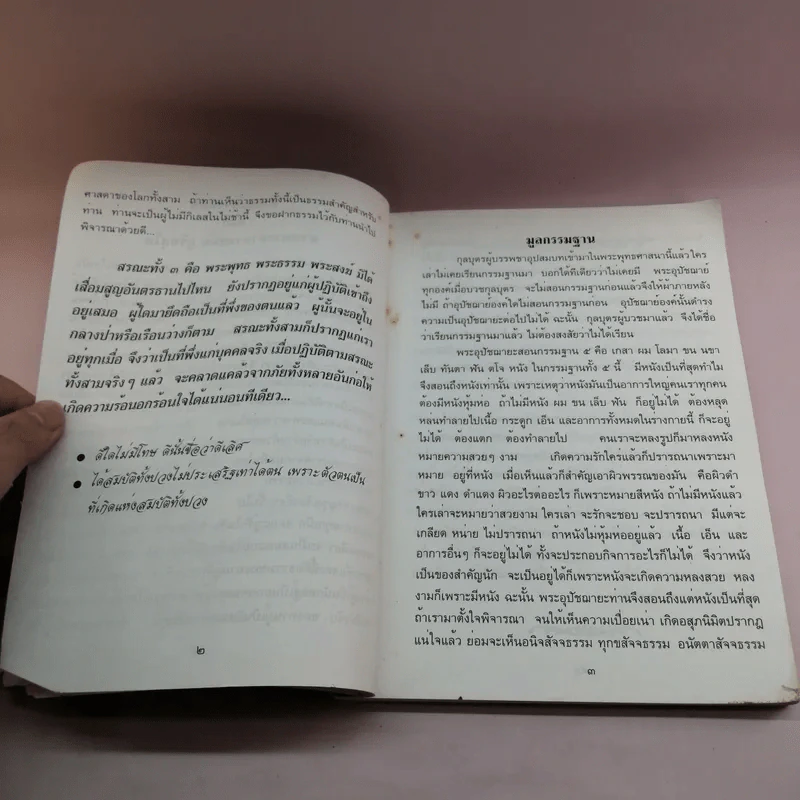 ศาสดาของโลกทั้งสาม ถ้าท่านเห็นว่าธรรมทั้งนี้เป็นธรรมสำคัญสำหรับ
ท่าน ท่านจะเป็นผู้ไม่มีกิเลสในไม่ช้านี้ จึงขอฝากธรรมไว้กับท่านนำไป
พิจารณาด้วยดี...
สรณะทั้ง ๓ คือ พระพุทธ พระธรรม พระสงฆ์ มิได้
เสื่อมสูญอันตรธานไปไหน ยังปรากฏอยู่แก่ผู้ปฏิบัติเข้าถึง
อยู่เสมอ ผู้ใดมายึดถือเป็นที่พึ่งของตนแล้ว ผู้นั้นจะอยู่ใน
กลางป่าหรือเรือนว่างก็ตาม สรณะทั้งสามก็ปรากฏแก่เรา
อยู่ทุกเมื่อ จึงว่าเป็นที่พึ่งแก่บุคคลจริง เมื่อปฏิบัติตามสรณะ
ทั้งสามจริงๆ แล้ว จะคลาดแคล้วจากภัยทั้งหลายอันก่อให้
เกิดความร้อนอกร้อนใจได้แน่นอนทีเดียว...
● ดีใดไม่มีโทษ ดีนั้นชื่อว่าดีเลิศ
● ได้สมบัติทั้งปวงไม่ประเสริฐเท่าได้ตน เพราะตัวตนเป็น
ที่เกิดแห่งสมบัติทั้งปวง
๒
มูลกรรมฐาน
กุลบุตรผู้บรรพชาอุปสมบทเข้ามาในพระพุทธศาสนานี้แล้วใคร
เล่าไม่เคยเรียนกรรมฐานมา บอกได้ทีเดียวว่าไม่เคยมี พระอุปัชฌาย์
ทุกองค์เมื่อบวชกุลบุตร จะไม่สอนกรรมฐานก่อนแล้วจึงให้ผ้าภายหลัง
ไม่มี ถ้าอุปัชฌาย์องค์ใดไม่สอนกรรมฐานก่อน อุปัชฌาย์องค์นั้นดำรง
ความเป็นอุปัชฌายะต่อไปไม่ได้ ฉะนั้น กุลบุตรผู้บวชมาแล้ว จึงได้ชื่อ
ว่าเรียนกรรมฐานมาแล้ว ไม่ต้องสงสัยว่าไม่ได้เรียน
พระอุปัชฌายะสอนกรรมฐาน ๕ คือ เกสา ผม โลมา ขน นขา
เล็บ ทันตา ฟัน ตโจ หนัง ในกรรมฐานทั้ง ๕ นี้ มีหนังเป็นที่สุดทำไม
จึงสอนถึงหนังเท่านั้น เพราะเหตุว่าหนังมันเป็นอาการใหญ่คนเราทุกคน
ต้องมีหนังหุ้มห่อ ถ้าไม่มีหนัง ผม ขน เล็บ ฟัน ก็อยู่ไม่ได้ ต้องหลุด
หล่นทำลายไปเนื้อ กระดูก เอ็น และอาการทั้งหมดในร่างกายนี้ ก็จะอยู่
ไม่ได้ ต้องแตก ต้องทำลายไป คนเราจะหลงรูปก็มาหลงหนัง
หมายความสวยๆ งาม เกิดความรักใคร่แล้วก็ปรารถนาเพราะมา
หมาย อยู่ที่หนัง เมื่อเห็นแล้วก็สำคัญเอาผิวพรรณของมัน คือผิวดำ
ขาว แดง ดำแดง ผิวอะไรต่ออะไร ก็เพราะหมายสีหนัง ถ้าไม่มีหนังแล้ว
ใครเล่าจะหมายว่าสวยงาม ใครเล่า จะรักจะชอบ จะปรารถนา มีแต่จะ
เกลียด หน่าย ไม่ปรารถนา ถ้าหนังไม่หุ้มห่ออยู่แล้ว เนื้อ เอ็น และ
อาการอื่นๆ ก็จะอยู่ไม่ได้ ทั้งจะประกอบกิจการอะไรก็ไม่ได้ จึงว่าหนัง
เป็นของสำคัญนัก จะเป็นอยู่ได้ก็เพราะหนังจะเกิดความหลงสวย หลง
งามก็เพราะมีหนัง ฉะนั้น พระอุปัชฌายะท่านจึงสอนถึงแต่หนังเป็นที่สุด
ถ้าเรามาตั้งใจพิจารณา จนให้เห็นความเปื่อยเน่า เกิดอสุภนิมิตปรากฏ
แน่ใจแล้ว ย่อมจะเห็นอนิจสัจจธรรม ทุกขสัจจธรรม อนัตตาสัจจธรรม
๓